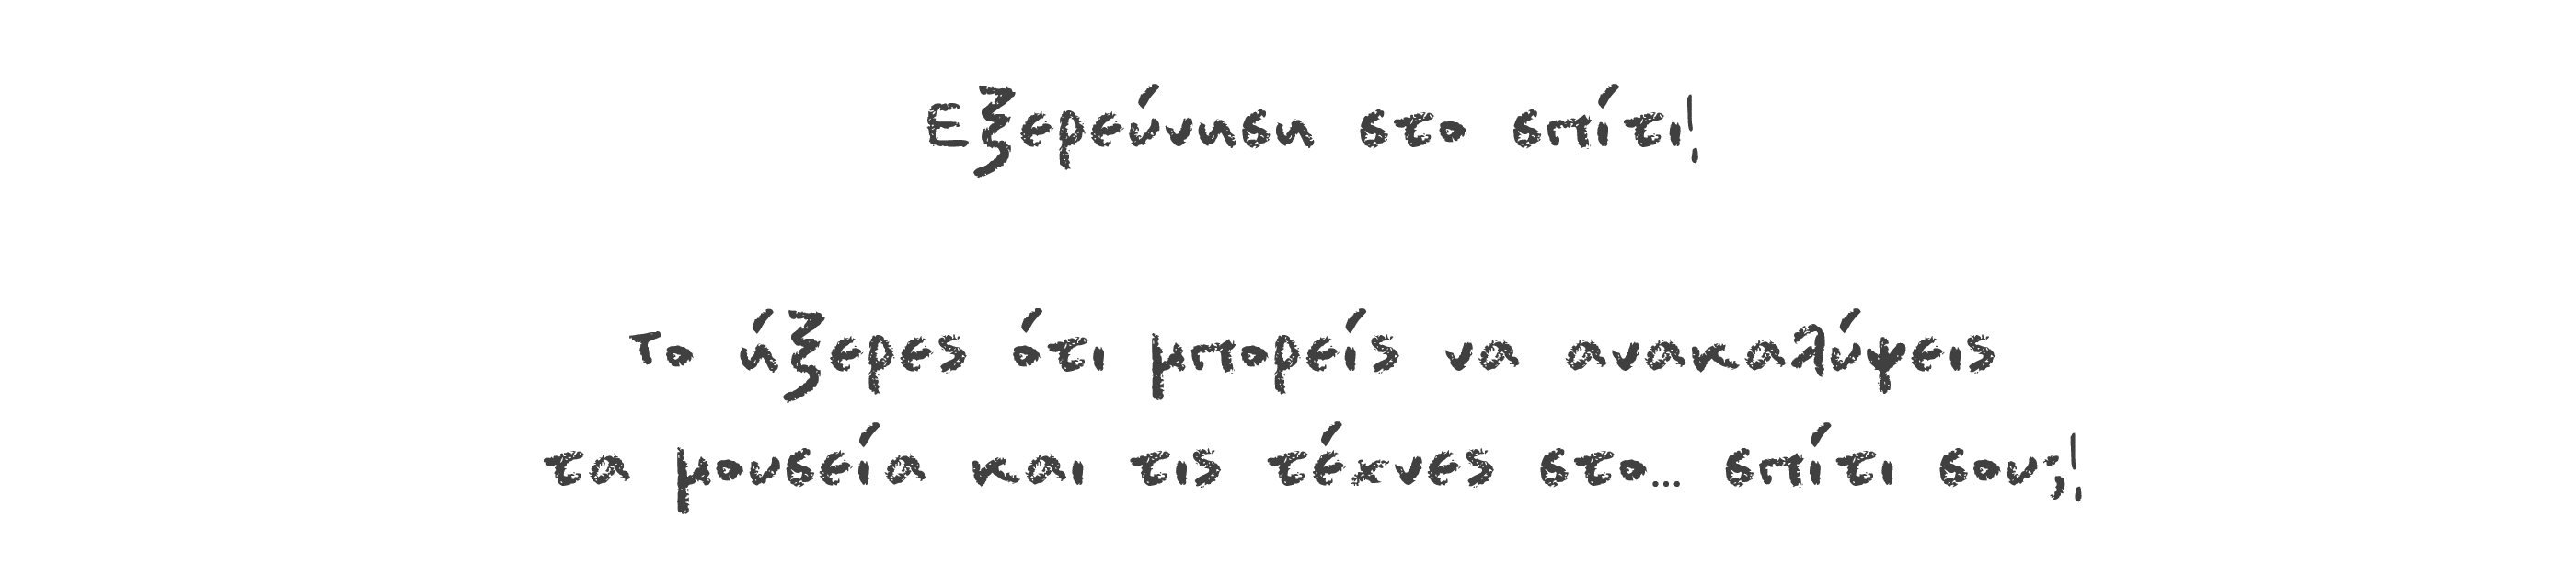 Εξερεύνηση στο σπίτι!
Το ήξερες ότι μπορείς να ανακαλύψεις
τα μουσεία και τις τέχνες στο... σπίτι σου;!